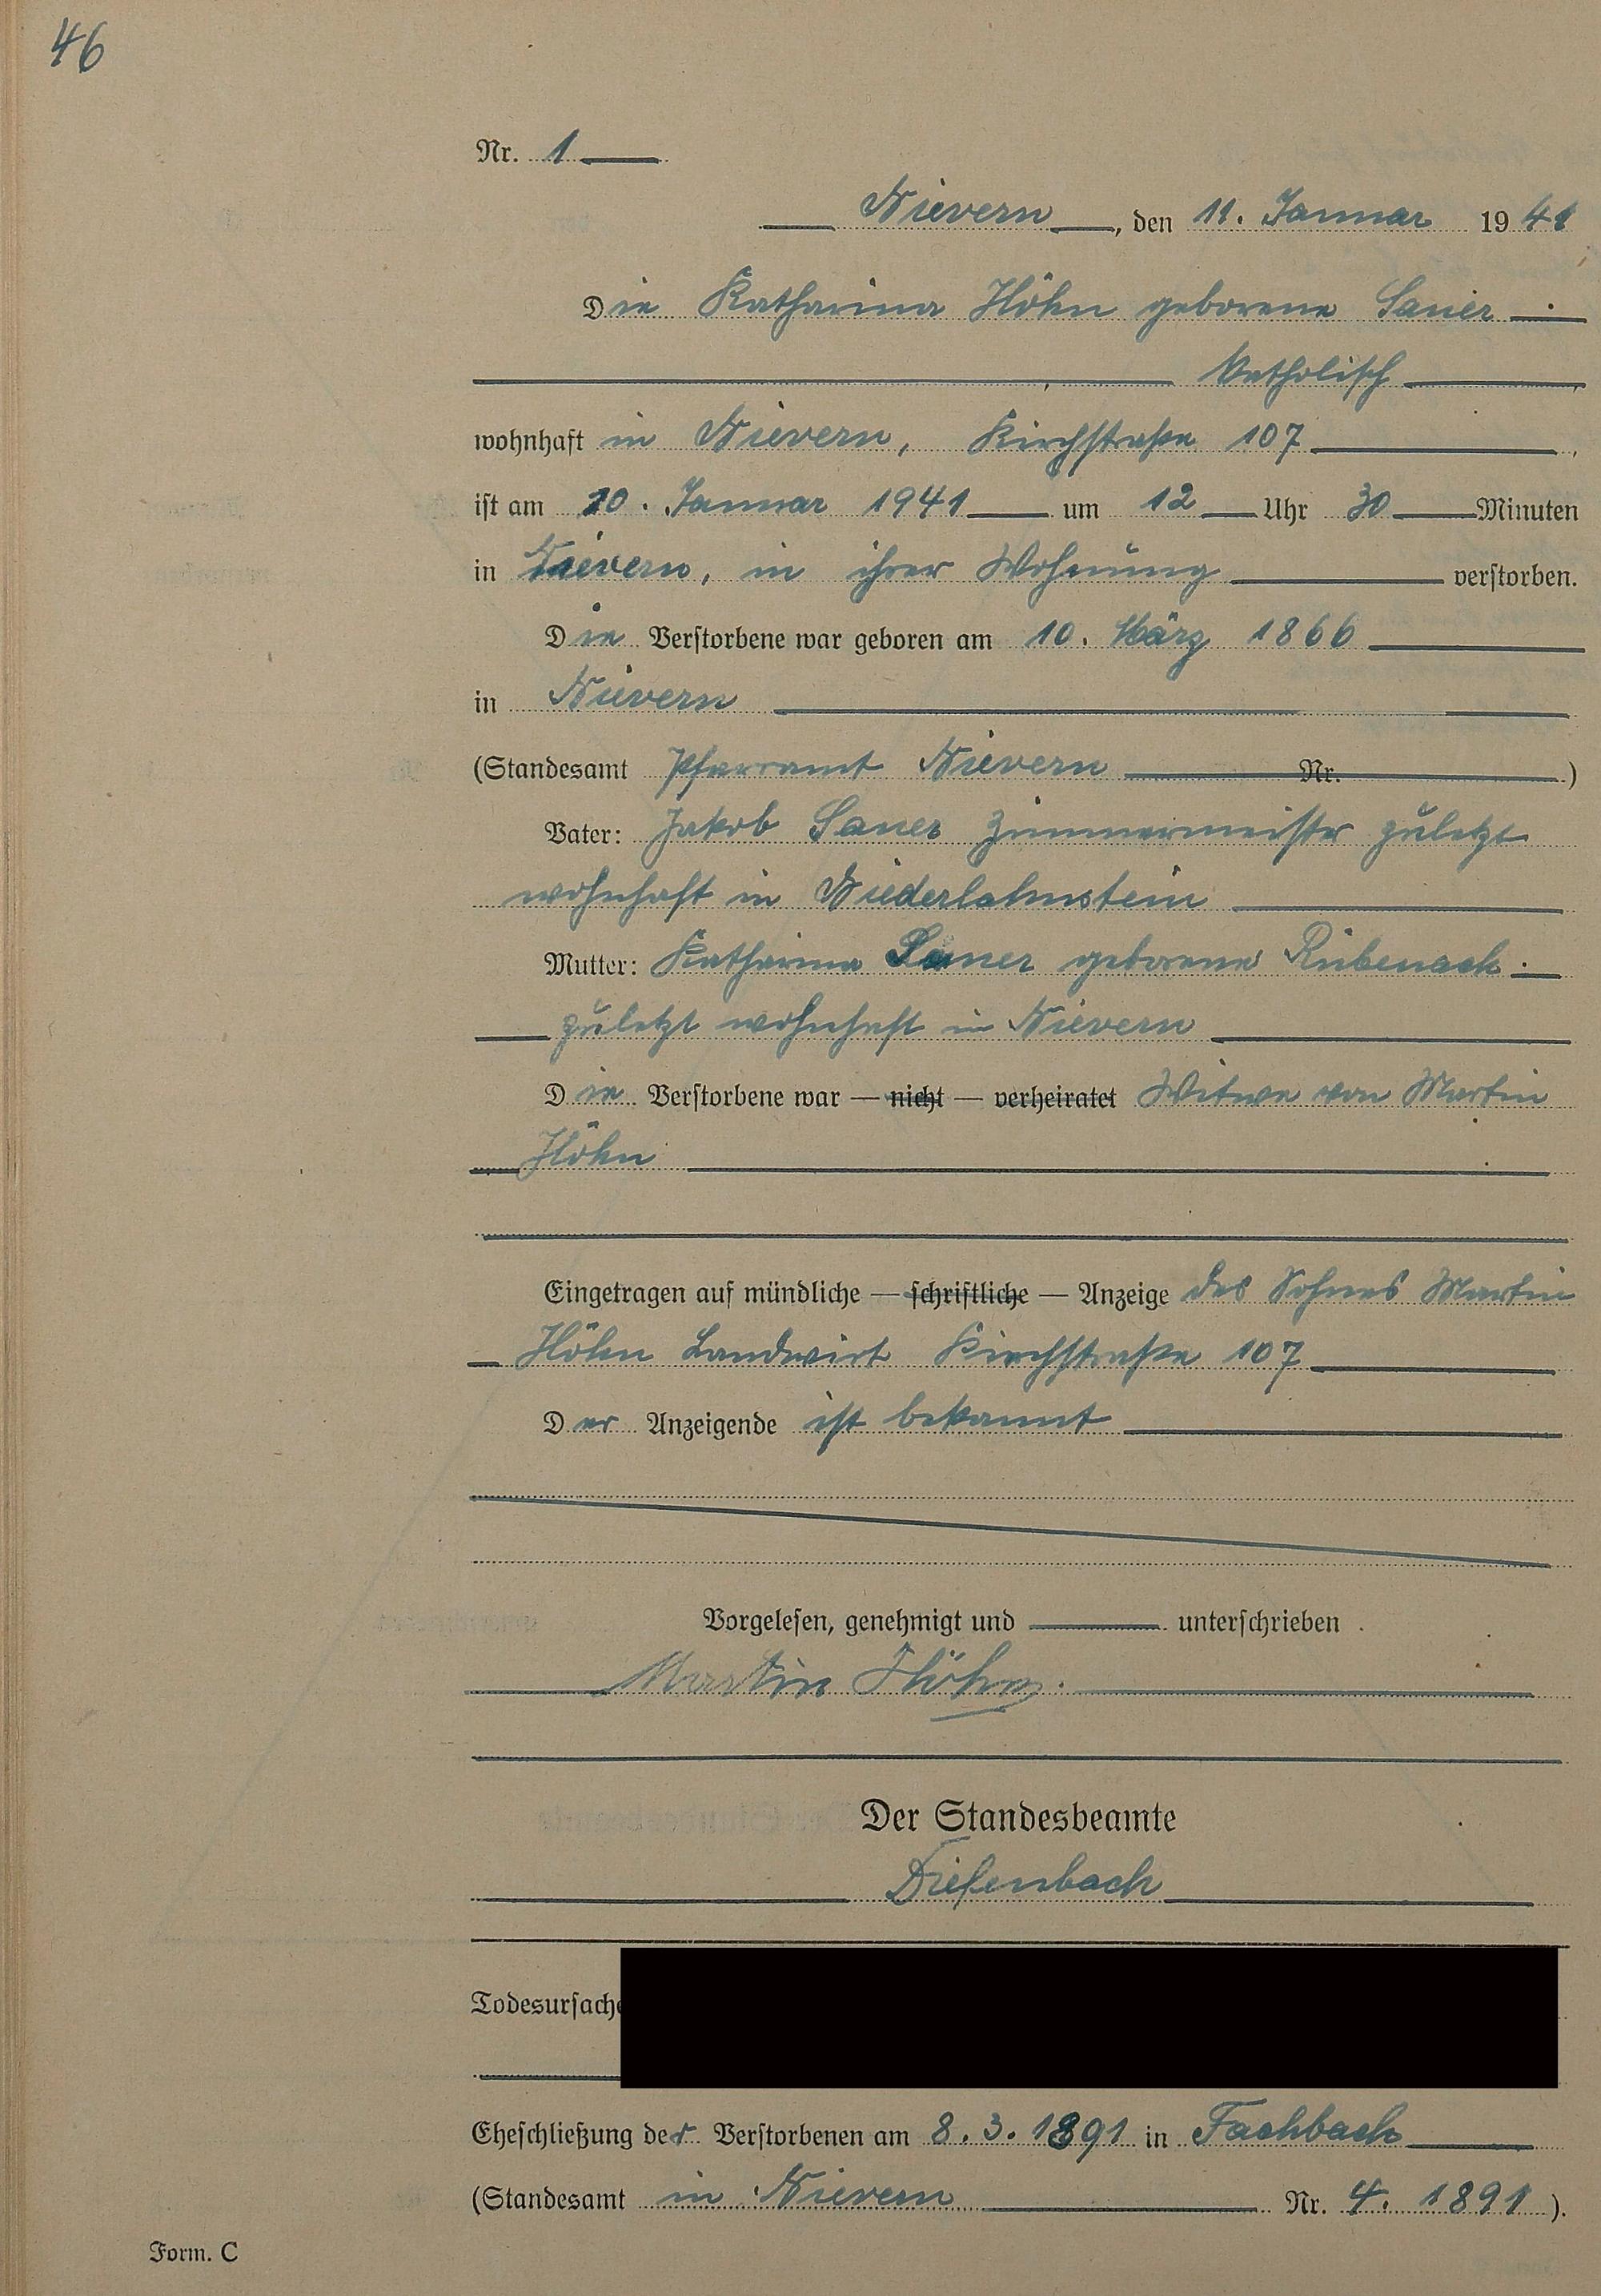 46
Nr. 1
Nievern, den 11. Januar 1941
Die Katharina Höhn geborene Sauer
katholisch
wohnhaft in Nievern, Kirchstraße 107,
ist am 10. Januar 1941 um 12 Uhr 30 Minuten
in Nievern, in ihrer Wohnung verstorben.
Die Verstorbene war geboren am 10. März 1866
in Nievern
(Standesamt Pfarramt Nievern Nr. )
Vater: Jakob Sauer Zimmermeister zuletzt
wohnhaft in Niederlahnstein
Mutter: Katharina Sauer geborene Rübenach
zuletzt wohnhaft in Nievern
Die Verstorbene war — nicht — verheiratet Witwe von Martin
Höhn
Eingetragen auf mündliche — schriftliche — Anzeige des Sohnes Martin
Höhn Landwirt Kirchstraße 107
Der Anzeigende ist bekannt
Vorgelesen, genehmigt und unterschrieben
Martin Höhn.
Der Standesbeamte
Diefenbach
Todesursache
Eheschließung der Verstorbenen am 8. 3. 1891 in Fachbach
(Standesamt in Nievern Nr. 4. 1891).
Form. C